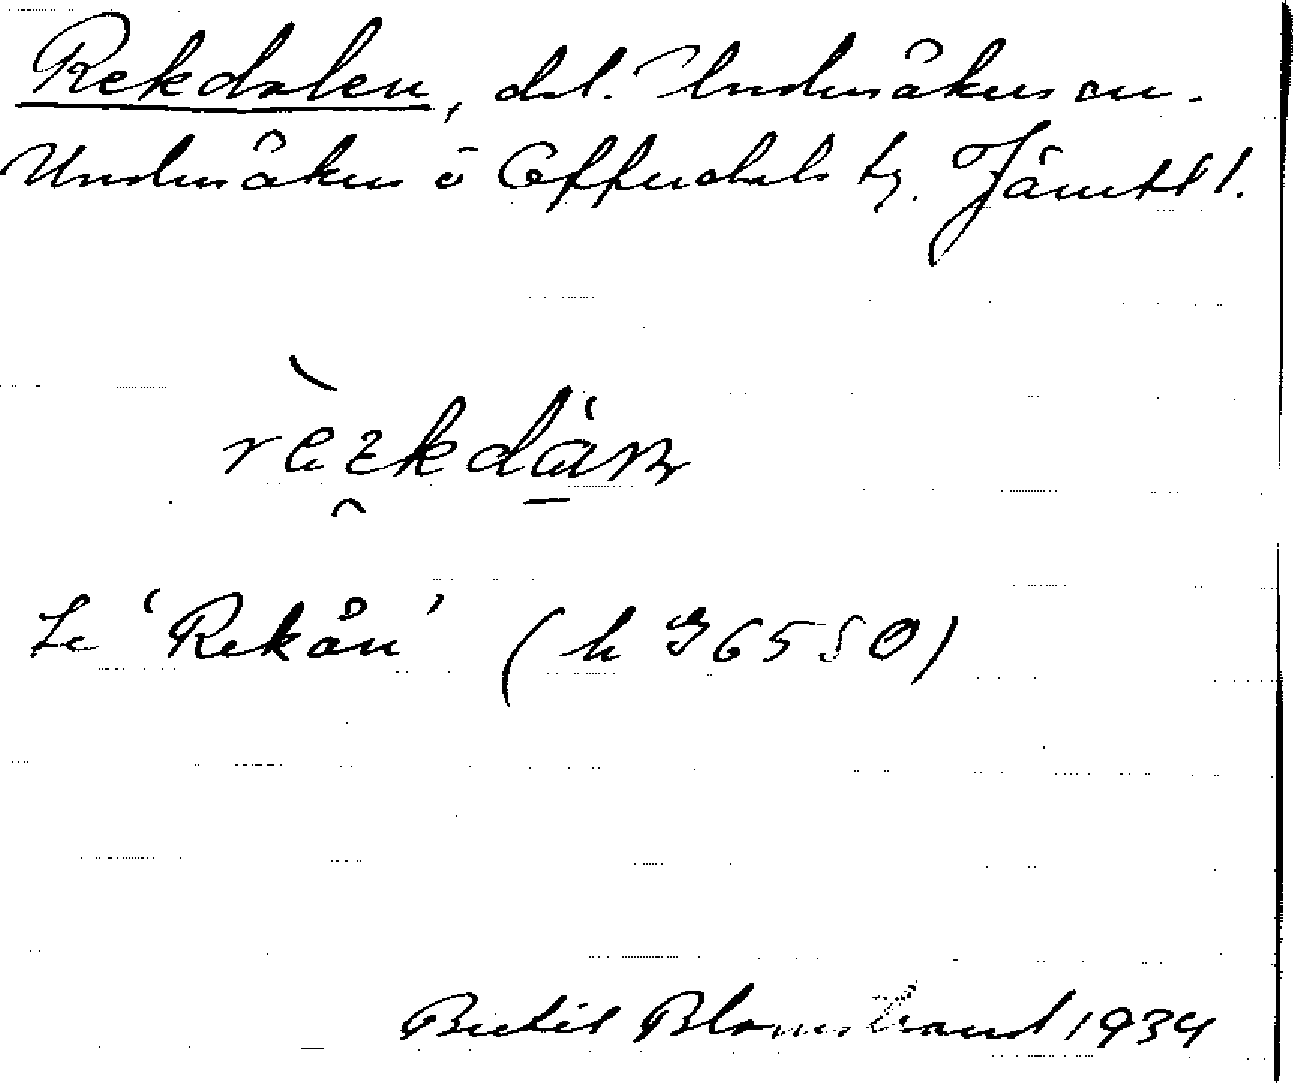 Rekdalen, dal. Undersåkers sn.
Undersåkers o Offerdals tg. Jämtl l.
Se 'Rekån' (h 36550)
Bertil Blomstrand 1934